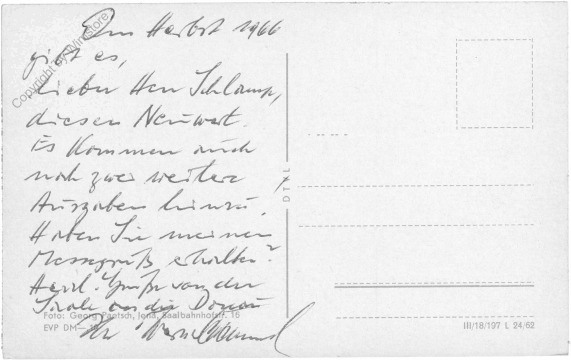 Im Herbst 1966
gibt es,
lieber Herr Schlamp,
diesen Neuwert.
Es kommen auch
noch zwei weitere
Ausgaben hinzu.
Haben Sie meinen
Messegruß erhalten?
Herzl. Grüße von der
Saale an die Donau
Ihr
Foto: Georg Paetsch, Jena, Saalbahnhofstr. 16
EVP DM
DTL
III/18/197 L 24/62
Copyright by Winstore